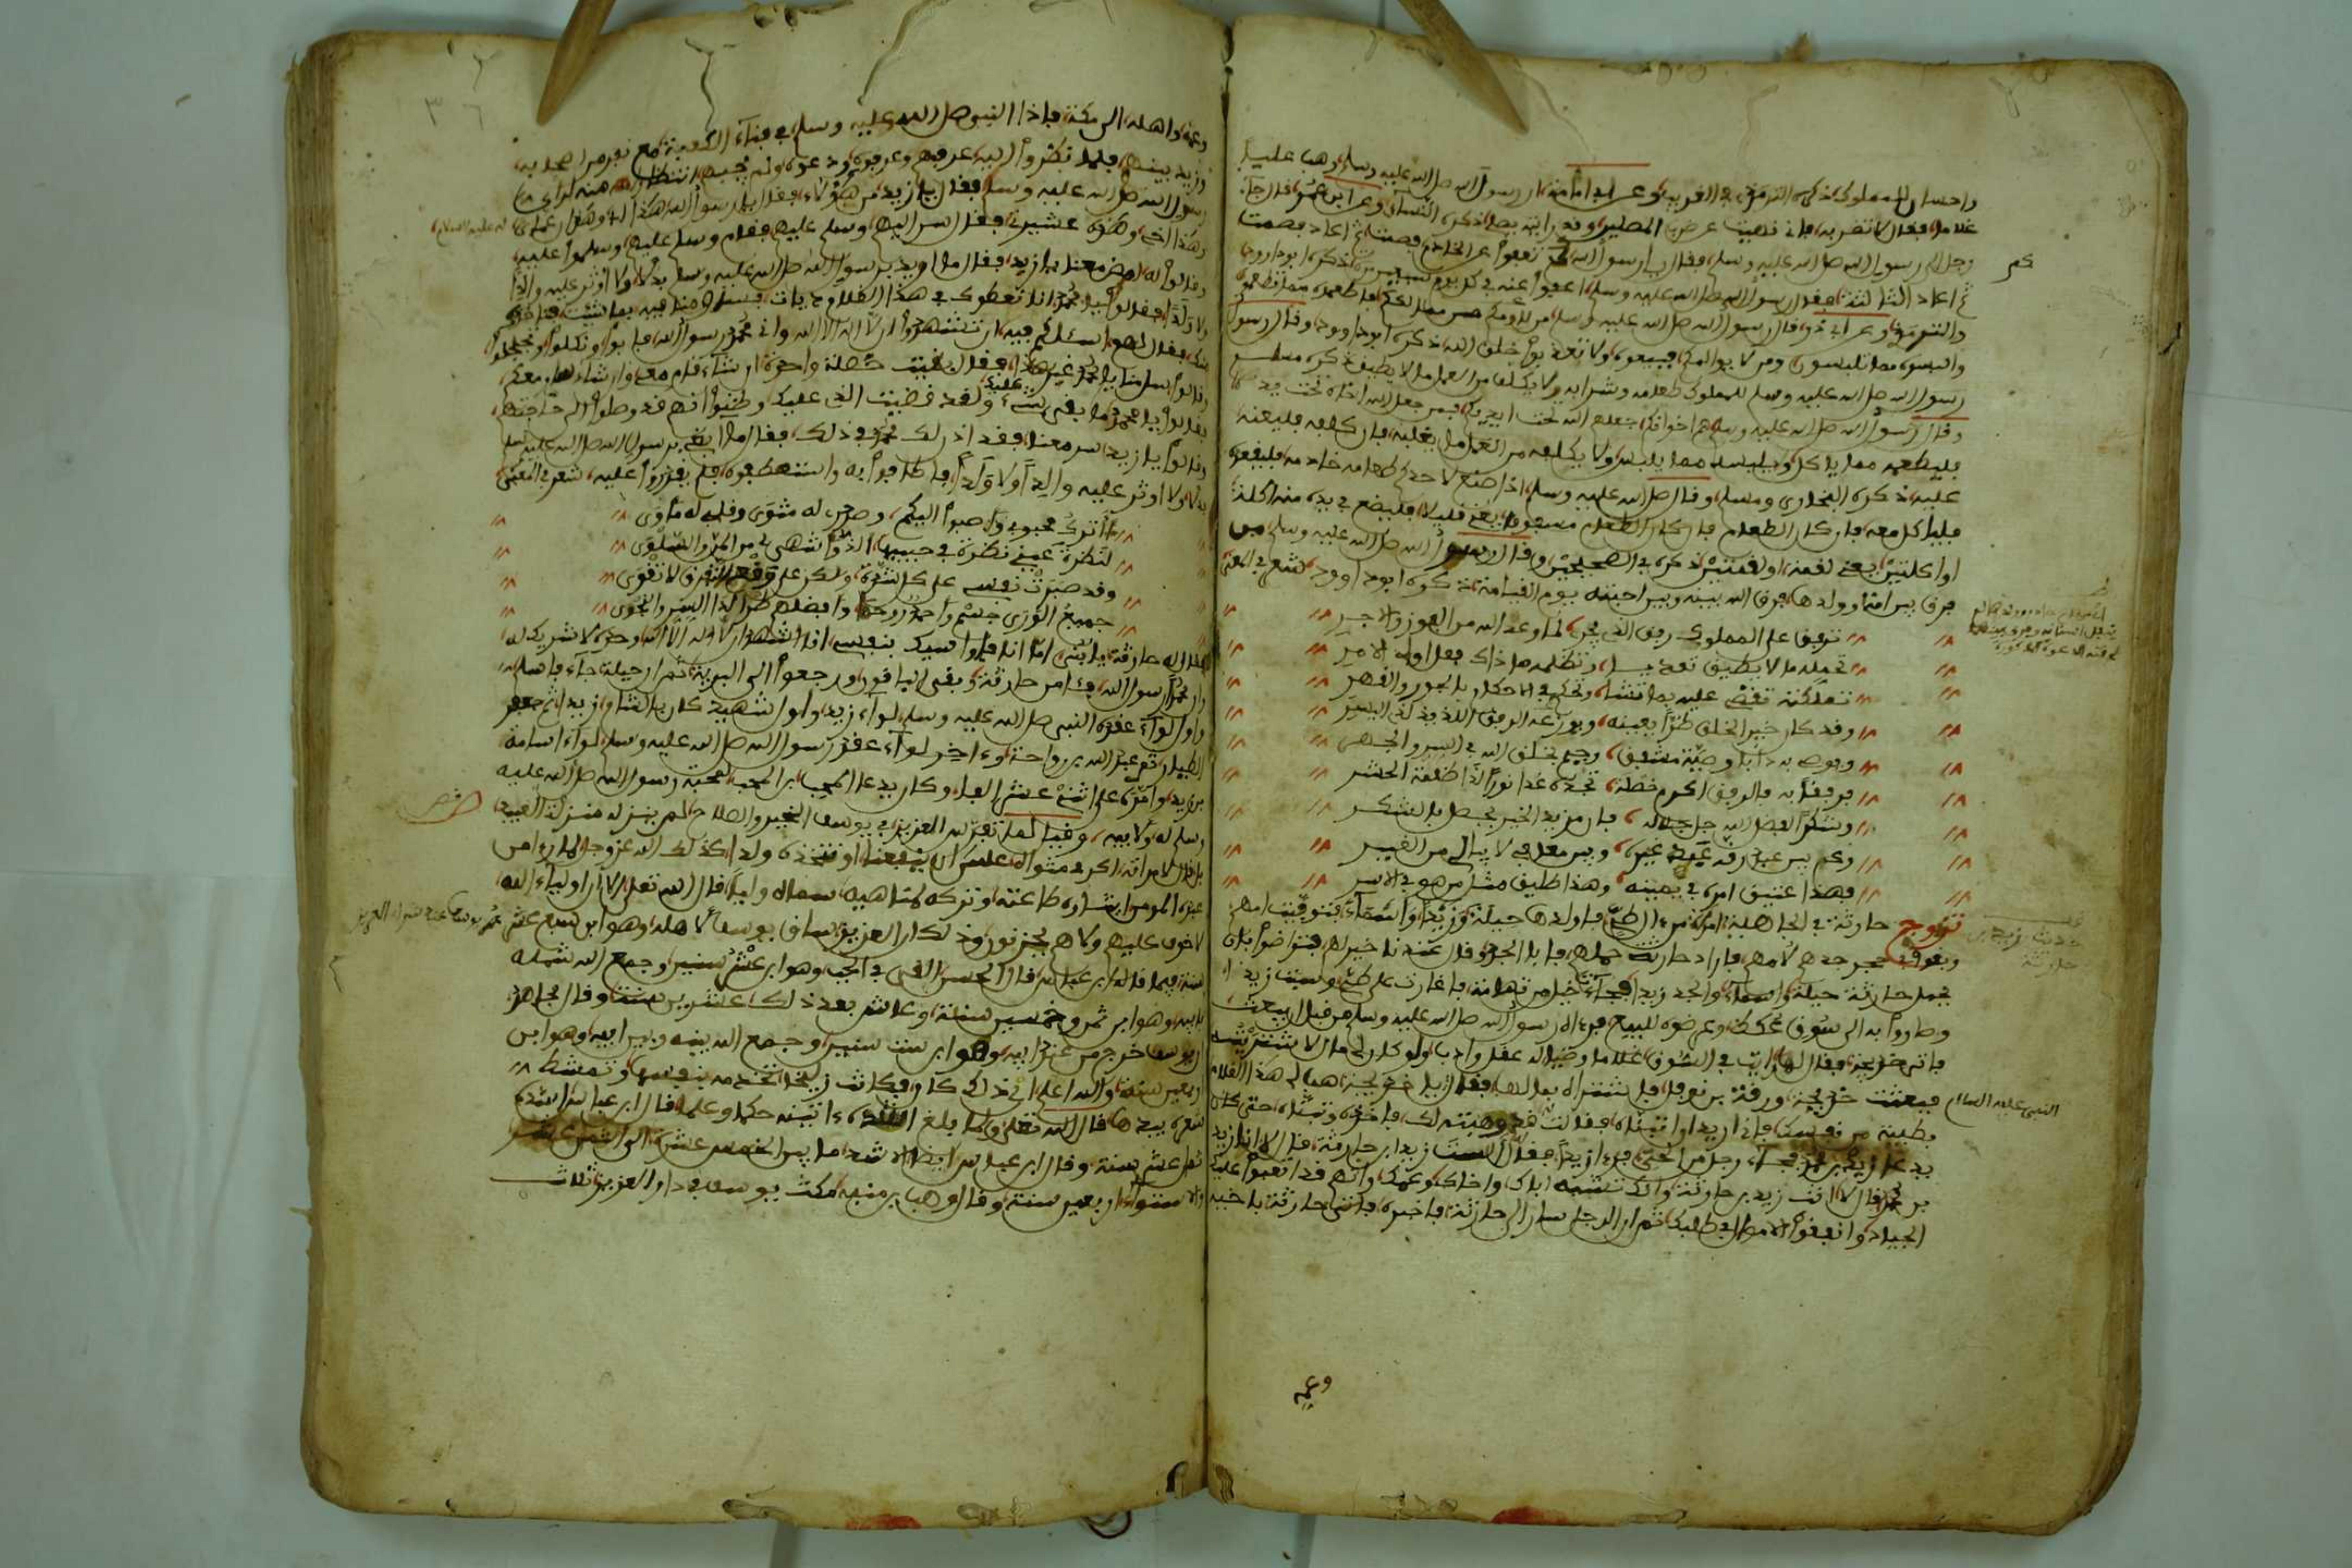 واحسان للمملوك ذكره الترمذي في الغريب وعن ابي امامة ان رسول الله صلى الله عليه وسلم وهب عليا
غلاما فقال لا تضربه فاني نهيت عن ضرب المصلين وقد رايته يصلي ذكره النسآئ وعن ابن عمر قال جآء
رجل الى رسول الله صلى الله عليه وسلم فقال يا رسول الله كم نعفوا عن الخادم فصمت ثم اعاد فصمت
ثم اعاد الثالثة فقال رسول الله صلى الله عليه وسلم اعفوا عنه في كل يوم سبعين مرة ذكره ابو داوود
والترمذي وعن ابي ذر قال رسول الله صلى الله عليه وسلم من لاومكم من مماليككم فاطعموه مما تطعموا
والبسوه مما تلبسون ومن لا يوالمكم فبيعوه ولا تعذبوا خلق الله ذكره ابو داوود وقال رسول
رسول الله صلى الله عليه وسلم للمملوك طعامه وشرابه ولا يكلف من العمل ما لا يطيق ذكره مسلم
وقال رسول الله صلى الله عليه وسلم هم اخوانكم جعلهم الله تحت ايديكم فمن جعل الله اخاه تحت يده
فليطعمه مما ياكل ويلبسه مما يلبس ولا يكلفه من العمل ما يغلبه فان كلفه فليعنه
عليه ذكره البخاري ومسلم وقال صلى الله عليه وسلم اذا صنع لاحدكم طعامه خادمه فليقعده
فلياكل معه فان كان الطعام مشفوها يعني قليلا فليضع في يده منه اكلة
او اكلتين يعني لقمة او لقمتين ذكره في الصحيحين وقال رسول الله صلى الله عليه وسلم من
فرق بين امة وولدها فرق الله بينه وبين احبته يوم القيامة ذكره ابو داوود شعر في المعنى
ترفق على المملوك رفق الذي يجري لما وعد الله من الفوز والاجر
تحمله ما لا يطيق تعديا وتظلمه ما ذاك فعل اولى الامر
تملكته تقضي عليه بما تشا وتحكم في الاحكام بالجور والقهر
وقد كان خير الخلق طرا بعينه
ويوصي به دأبا وصية مشفق رحيم بخلق الله في السر والجهر
فرفقا به فالرفق اكرم خصلة تجده غدا نورا لدا ظلمة الحشر
وشكرا لفضل الله جل جلاله فان مزيد الخير يحصل بالشكر
وكم بين عبد رق عبد غيره وبين معافى لا يبالي من الغير
فهذا عتيق امره في يمينه وهذا طليق مثل من هو في الاسر
تزوج حارثة في الجاهلية امراة من طي فاولدها جبلة وزيدا واسمآء فتوفيت امهم
وبقوا في حجر جدهم لامهم فاراد حارثة حملهم فابا الجد وقال عندنا خير لهم فتراضوا بان
يحمل حارثة جبلة واسمآء والجد زيدا فجآءت خيل من تهامة فاغارت على طي وسبت زيدا
وصاروا به الى سوق عكاظ وعرضوه للبيع فرءاه رسول الله صلى الله عليه وسلم من قبل ان يبعث
فاتى خديجة فقال لها رايت في السوق غلاما وصفاته عقل وادب ولو كان لي مال لاشتريته
فبعثت خديجة ورقة بن نوفل فاشتراه بمالها فقال يا خديجة هبي لي هذا الغلام
بطيبة من نفسك فاني اريد ان اتبناه فقالت قد وهبته لك فاخذه وتبناه حتى كان
يدعى زيد بن محمد فجآء رجل من الحي فرءا زيدا فقال الست زيدا بن حارثة قال لا انا زيد
بن محمد قال لا انت زيد بن حارثة وانك تشبه اباك واخاك وعمك وانهم قد اتعبوا عليك
الجياد وانفقوا الاموال في طلبك ثم ان الرجل سار الى حارثة فاخبره فاتى حارثة باخيه
وعمه
حديث زيد بن حارثة
النبي عليه السلام
وعمه واهله الى مكة فاذا النبي صلى الله عليه وسلم في فنآء الكعبة مع نفر من اصحابه
وزيد بينهم فلما نظروا اليه عرفهم وعرفوه ودعوه ولم يجبهم انتظارا منه لراي
رسول الله صلى الله عليه وسلم فقال يا زيد من هؤلاء فقال يا رسول الله هذا ابي وهذا عمي
وهذا اخي وهؤلاء عشيرتي فقال سر اليهم وسلم عليهم فقام وسلم عليهم وسلموا عليه
وقالوا له امض معنا يا زيد فقال ما اريد برسول الله صلى الله عليه وسلم بدلا ولا اوثر عليه والدا
ولا ولدا فقالوا يا محمد انا نعطوك في هذا الغلام ديات فسل فيه بما شئت
فقال لهم اسئلكم فيه ان تشهدوا ان لا اله الا الله واني محمد رسول الله فابوا ونكلوا
وقالوا سلنا يا محمد غير هذا فقال بقيت خصلة واحدة ان شاء قام معي وان شاء سار معكم
فقالوا يا محمد ما بقي عليك شيء ولقد قضيت الذي عليك وظنوا انهم قد وصلوا الى حاجتهم
وقالوا يا زيد سر معنا فقد اذن لك محمد في ذلك فقال ما ابغي برسول الله صلى الله عليه وسلم
بدلا ولا اوثر عليه والدا ولا ولدا فاطافوا به واستعطفوه فلم يقدروا عليه شعر في المعنى
ءأترك محبوبي واصبوا اليكم وصدري له مثوى وقلبي له مأوى
لنظرة عيني نظرة في حبيبها الذ واشهى لي من المن والسلوى
وقد صبرت نفسي على كل شدة ولكن على وقع التفرق لا تقوى
جميع الورى جسم واحمد روحه وافضلهم طرا لدا السر والنجوى
فقال له حارثة يا بني اما انا فاواسيك بنفسي انا اشهد ان لا اله الا الله وحده لا شريك له
وان محمدا رسول الله فئامن حارثة وبقي الباقون ورجعوا الى البرية ثم ان جبلة جآء فاسلم
واول لوآء عقده النبي صلى الله عليه وسلم لوآء زيد واول شهيد كان بالشام زيد ثم جعفر
الطيار ثم عبد الله بن رواحة وءاخر لوآء عقده رسول الله صلى الله عليه وسلم لوآء اسامة
بن زيد وامره على اثني عشر الفا وكان يدعا الحب بن الحب لمحبة رسول الله صلى الله عليه
وسلم له ولابيه وقيل لما تفرس العزيز في يوسف الخير والصلاح لم ينزله منزلة العبيد
بل قال لامراته اكرمي مثواه عسى ان ينفعنا او نتخذه ولدا كذلك الله عز وجل لما راى من
عبده المومن ارشاده طاعته وتركه لمناهيه سماه وليا قال الله تعلى الآ ان اوليآء الله
لا خوف عليهم ولا هم يحزنون وذلك ان العزيز ساق يوسف لاهله وهو ابن سبع عشر
سنة فيما قاله ابن عباس قال الحسن القي في الجب وهو ابن عشر سنين وجمع الله شمله
بابيه وهو ابن ثمن وخمسين سنة وعاش بعد ذلك عشرين سنة وقال مجاهد
يوسف خرج من عند ابيه وهو ابن ست سنين وجمع الله بينه وبين ابيه وهو ابن
اربعين سنة والله اعلم اي ذلك كان فكانت زليخا تخدمه بنفسها وتمشط
شعره بيدها قال الله تعلى ولما بلغ اشده ءاتينه حكما وعلما قال ابن عباس اشده
ثمان عشر سنة وقال ابن عباس ايضا الاشد ما بين الخمس عشرة الى
والاستواء اربعين سنة وقال وهب بن منبه مكث يوسف في دار العزيز ثلاث